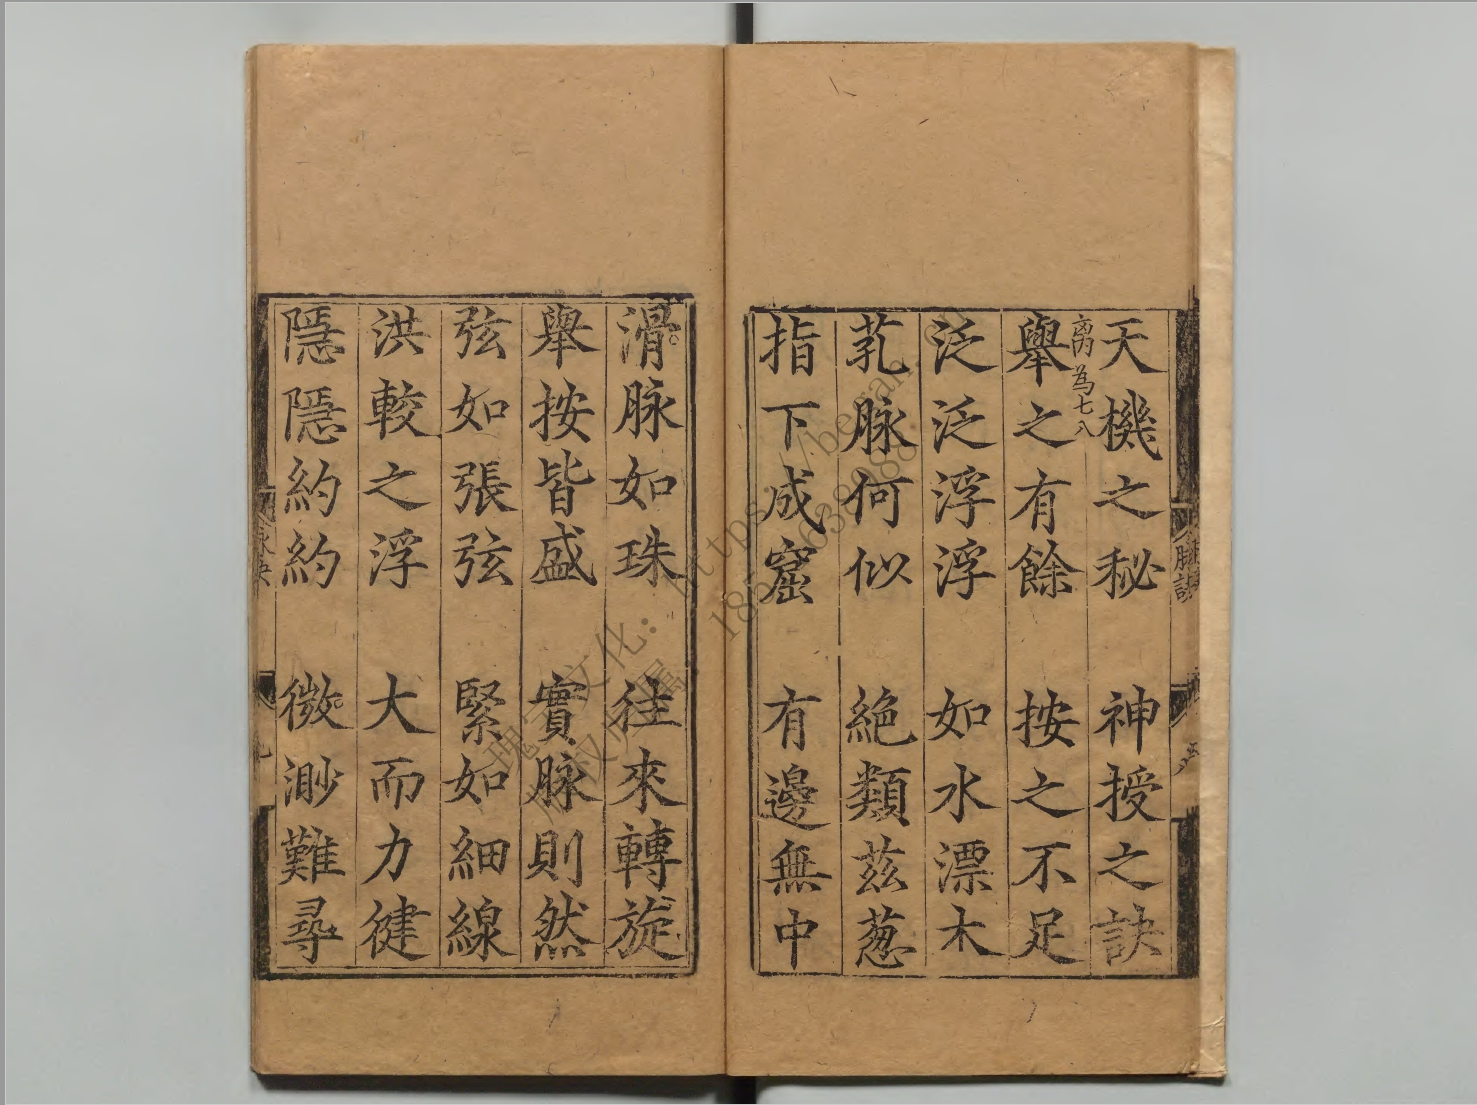 天機之秘　神授之訣
离為七八
舉之有餘　按之不足
泛泛浮浮　如水漂木
芤脉何似　絶類兹葱
指下成窟　有邊無中
滑脉如珠　往來轉旋
舉按皆盛　實脉則然
弦如張弦　緊如細線
洪較之浮　大而力健
隱隱約約　微渺難尋
脉訣